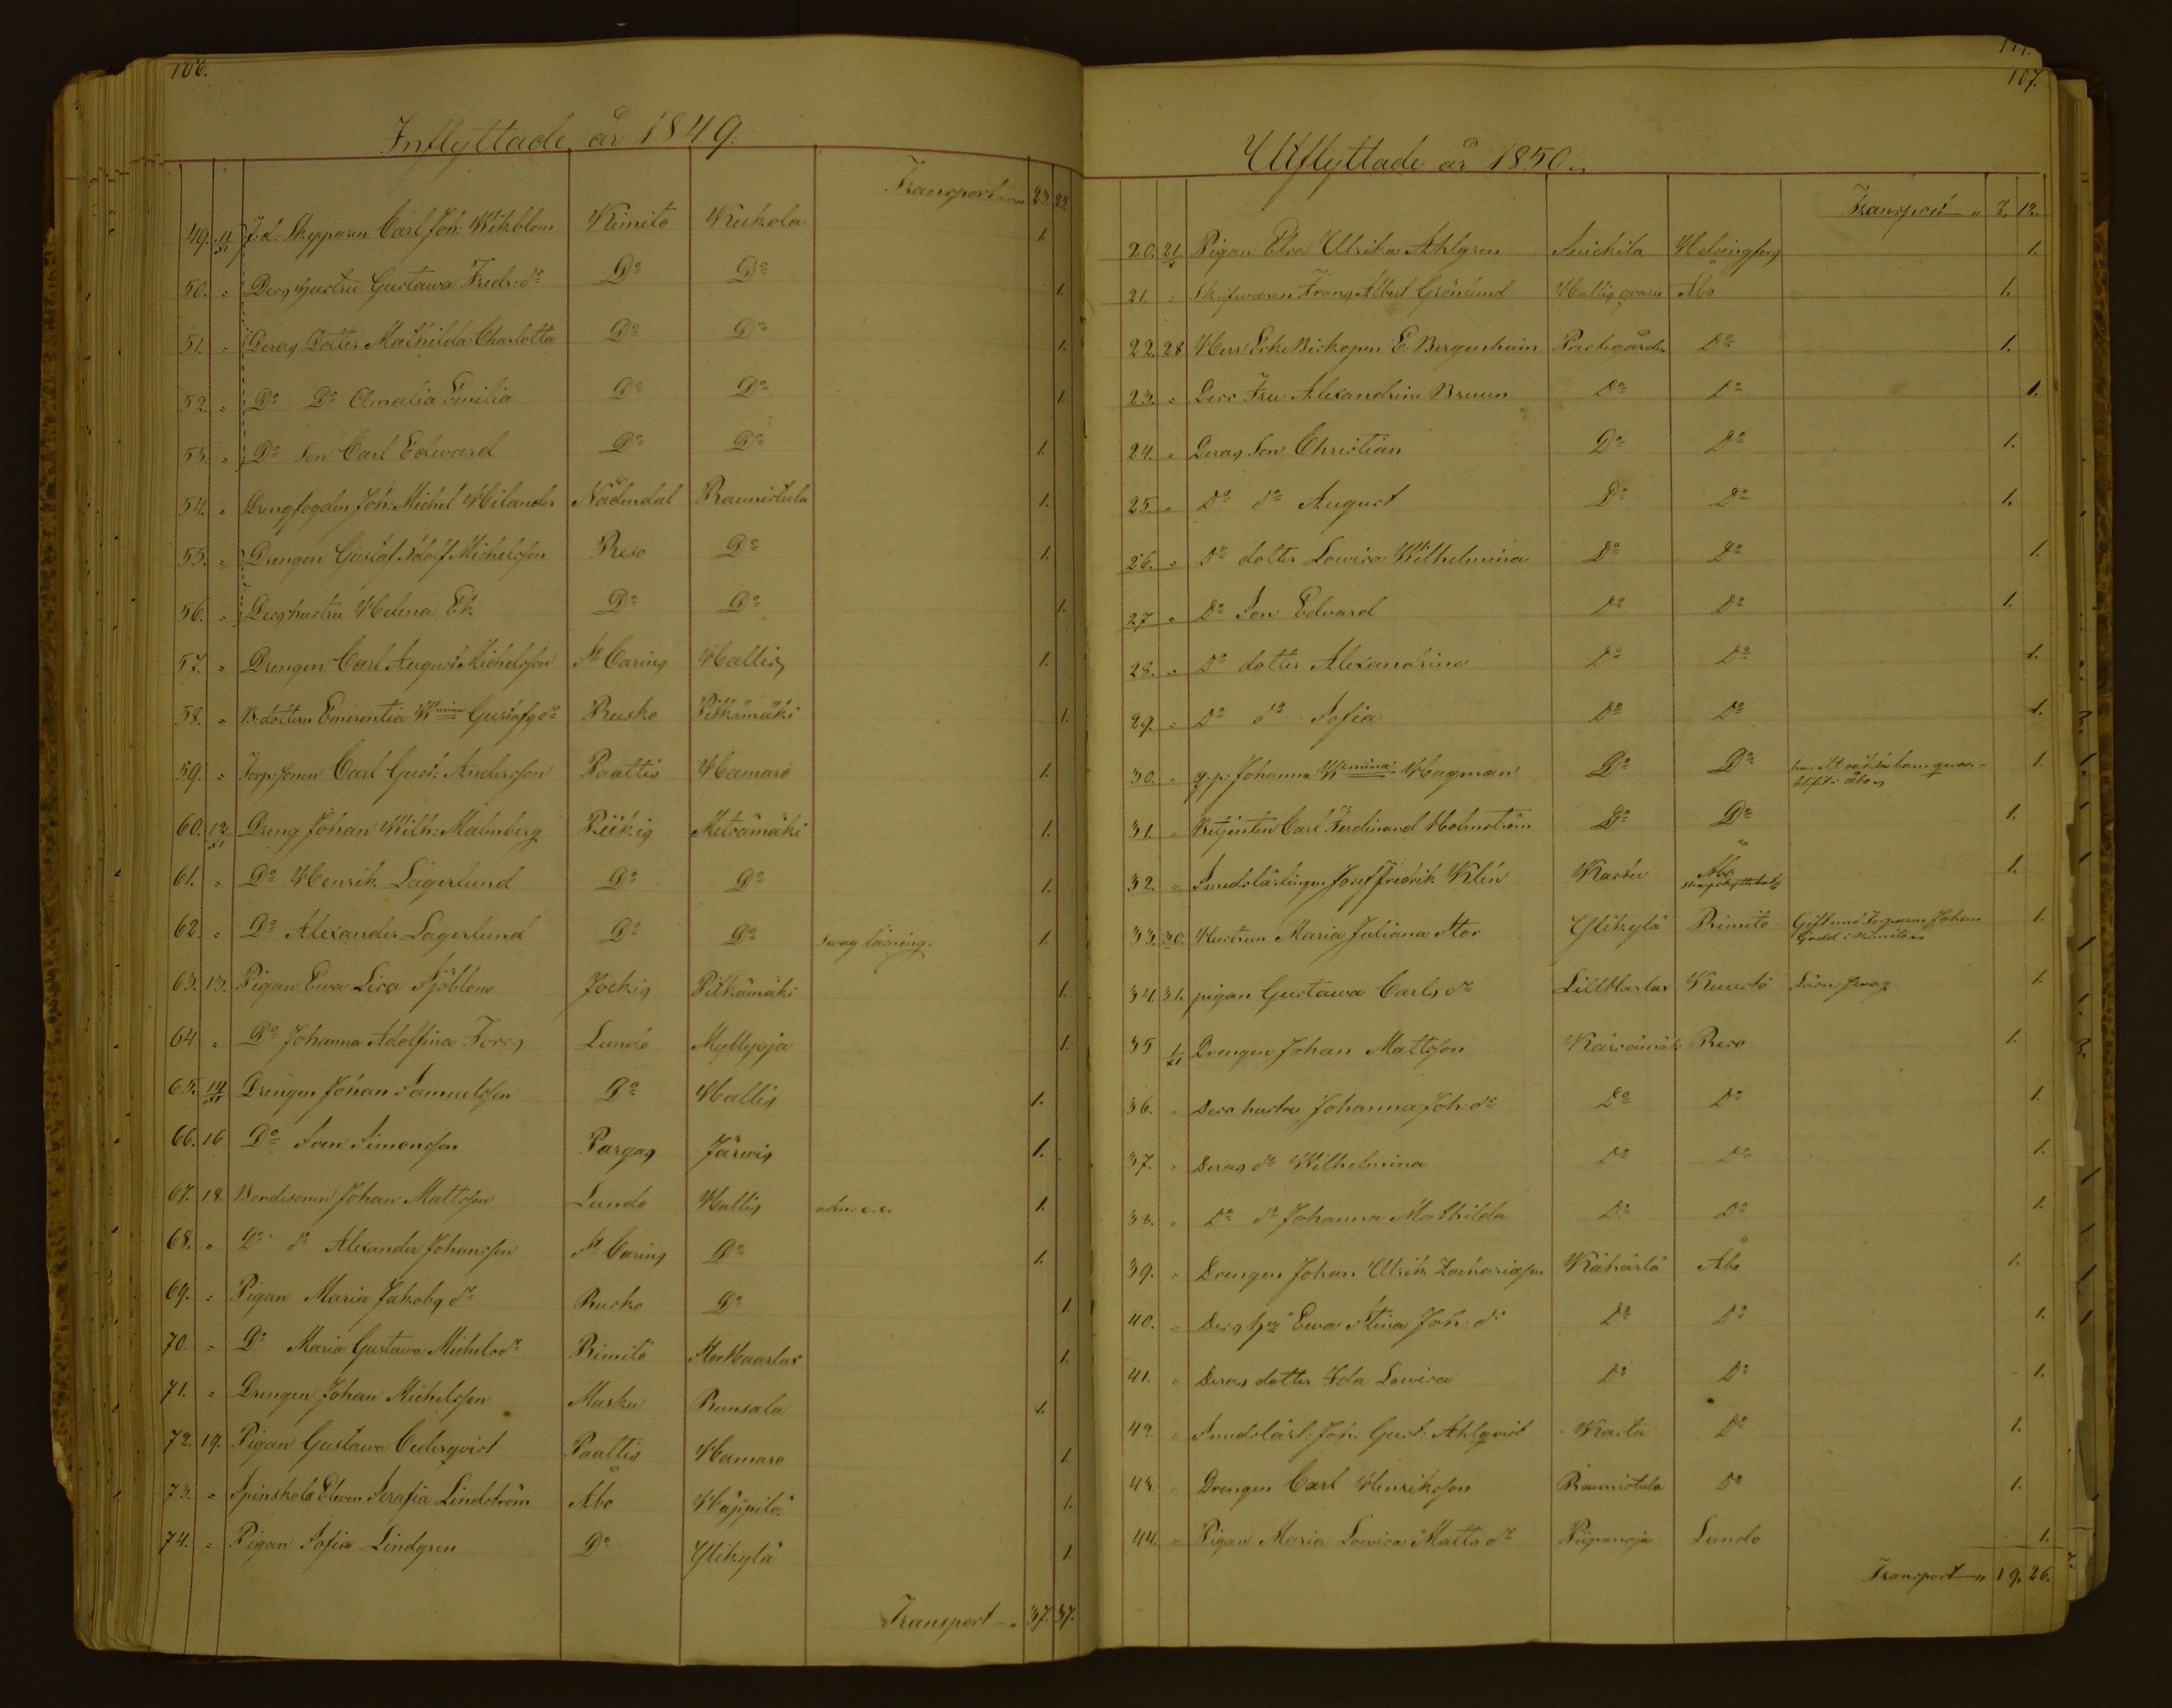 106.
Inflyttade år 1849.
Transport 23. 22.
49. 11/XI F.d. Skepparen Carl Joh: Wikblom Kimito Kukola 1.
50. " Dess hustru Gustawa Fredr: dr Do Do 1.
51. " Deras Dotter Mathilda Charlotta Do Do 1.
52. " Do Do Amalia Emilia Do Do 1.
53. " Do Son Carl Edward Do Do 1.
54. " Drengfogden Joh: Michel Helander Nådendal Raunistula 1.
55. " Drengen Gustaf Adolf Michelsson Reso Do 1.
56. " Dess hustru Helena Ek Do Do 1.
57. " Drengen Carl August Michelsson St Carins Hallis 1.
58. " B.dottern Emerentia Wmina Gustafs dr Rusko Pitkämäki 1.
59. " Torp.sonen Carl Gust: Andersson Paattis Hamaro 1.
60. 12/XI Dreng Johan Wilh: Malmberg Piikis Metsämäki 1.
61. " Do Henrik Lagerlund Do Do 1.
62. " Do Alexander Lagerlund Do Do Swag läsning. 1.
63. 13. Pigan Ewa Lisa Sjöblom Jockis Pitkämäki 1.
64 " Do Johanna Adolfina Forss Lundo Myllyoja 1.
65. 14/XI Drengen Johan Samuelsson Do Hallis 1.
66. 16 Do Sven Simonsson Pargas Järwis 1.
67. 18. Bondesonen Johan Mattsson Lundo Hallis adm: s.c. 1.
68. " Do do Alexander Johansson St Carins Do 1.
69. " Pigan Maria Jakobs dr Rusko Do 1.
70. " Do Maria Gustawa Michels dr Rimito Stor Haarlax 1.
71. " Drengen Johan Michelsson Masku Runsala 1.
72. 19. Pigan Gustawa Cederqvist Paattis Hamaro 1.
73. " Spinskola Eleven Serafia Lindström Åbo Wäppilä 1.
74. " Pigan Sofia Lindgren Do Ylikylä 1.
Transport 37. 37.
107.
Utflyttade år 1850.
Transport 7. 12.
20. 21/X Pigan Elva Ulrika Ahlgren Suikkila Helsingfors 1.
21. " Skrifwaren Frans Albert Grönlund Hallis qvarn Åbo 1.
22. 28 Herr Erke Biskopen E. Bergenheim Prestegården Do 1.
23. " Dess Fru Alexandrine Bruun Do Do 1.
24. " Deras Son Christian Do Do 1.
25. " Do do August Do Do 1.
26. " Do dotter Lowisa Wilhelmina Do Do 1.
27 " Do Son Edvard Do Do 1.
28. " Do dotter Alexandrina Do Do 1.
29. " Do do Sofia Do Do 1.
30. " g.p. Johanna Wmina Hagman Do Do 1.
31. " Betjenten Carl Ferdinand Holmström Do Do 1.
32. " Smedslärlingen Josef Fredrik Klén Karsku Åbo 1.
33. 30. Hustrun Maria Juliana Stor Ylikylä Rimito Gift med Torparen Johan 1.
Gadd i Rimito
34. 31. pigan Gustawa Carls dr Lill Harlax Kuustö Läsn: swag 1.
35 1/XI Drengen Johan Mattsson Käräsmäki Reso 1.
36. " Dess hustru Johanna Joh: dr Do Do 1.
37. " Deras dr Wilhelmina Do Do 1.
38. " Do do Johanna Mathilda Do Do 1.
39. " Drengen Johan Ulrik Zachariasson Kähärlä Åbo 1.
40. " Dess hu Ewa Stina Joh: dr Do Do 1.
41. " Deras dotter Ida Lowisa Do Do 1.
42. " Smedslärl: Joh: Gust: Ahlqvist Kastu Do 1.
43. " Drengen Carl Henriksson Raunistula Do 1.
44. " Pigan Maria Lowisa Matts dr Piipanoja Lundo 1.
Transport 19. 26.